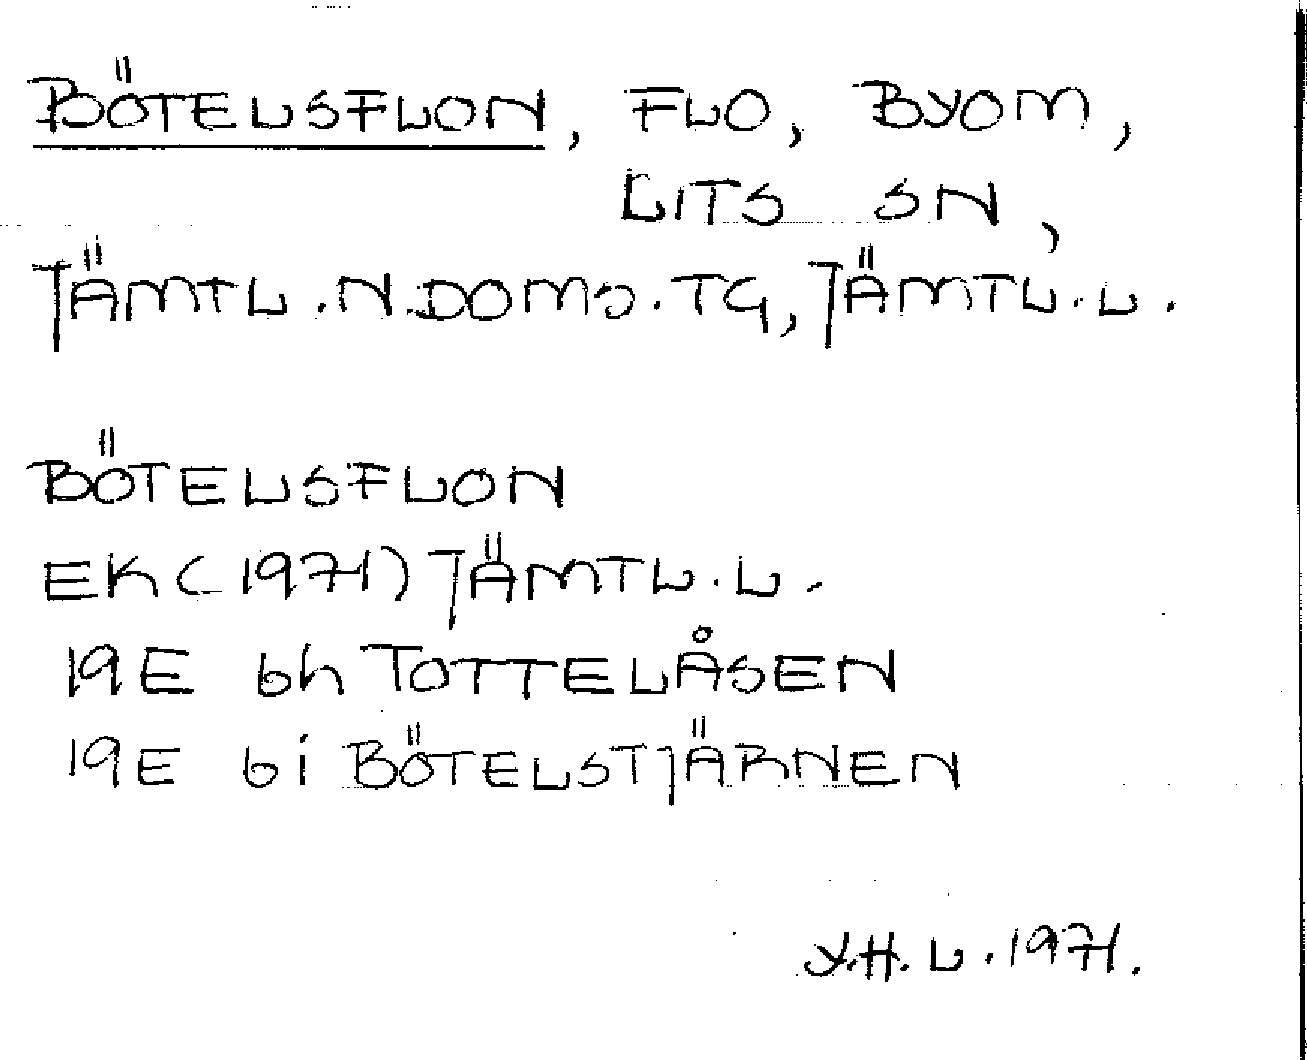 BÖTELSFLON, FLO, BYOM,
LITS SN,
JÄMTL.N.DOMS.TG, JÄMTL.L.
BÖTELSFLON
EK (1971) JÄMTL.L.
19E 6h TOTTELÅSEN
19E 6i BÖTELSTJÄRNEN
Y.H.L. 1971.